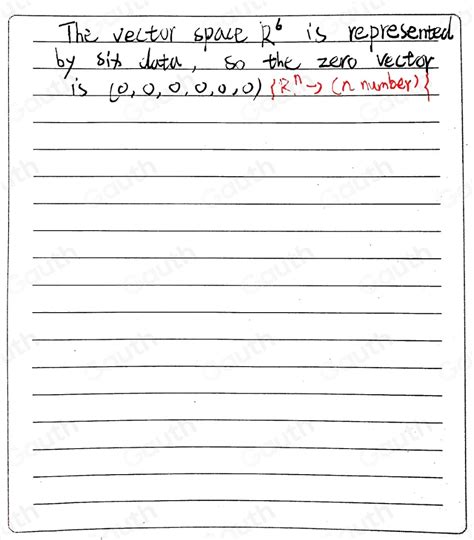 The vector space R⁶ is represented
by six data, so the zero vector
is (0, 0, 0, 0, 0, 0) {Rⁿ → (n number)}